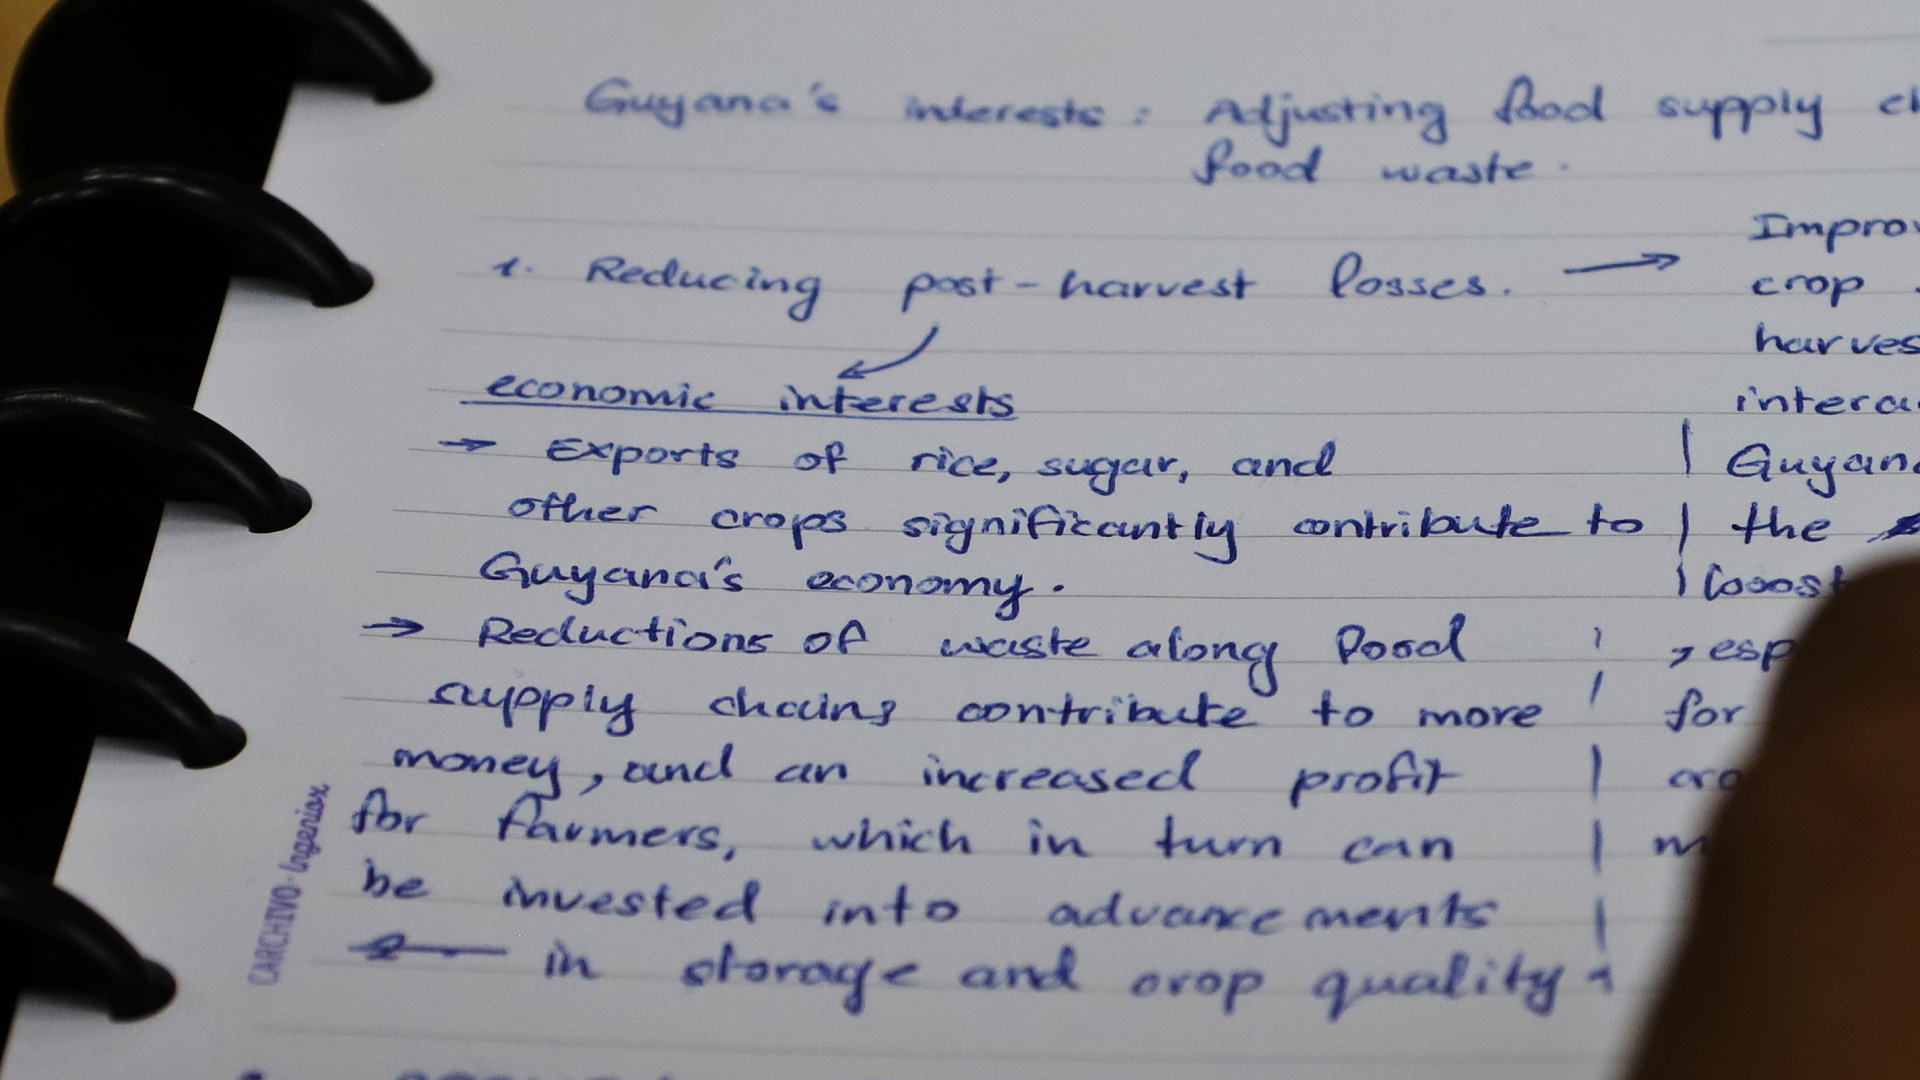 Guyana's interests: Adjusting food supply
food waste.
1. Reducing post-harvest losses. →
crop
economic interests
→ Exports of rice, sugar, and
other crops significantly contribute to
the
Guyana's economy.
→ Reductions of waste along food
supply chains contribute to more
for
money, and an increased profit
for farmers, which in turn can
be invested into advancements
in storage and crop quality
CARCHIVO-Ingeniox